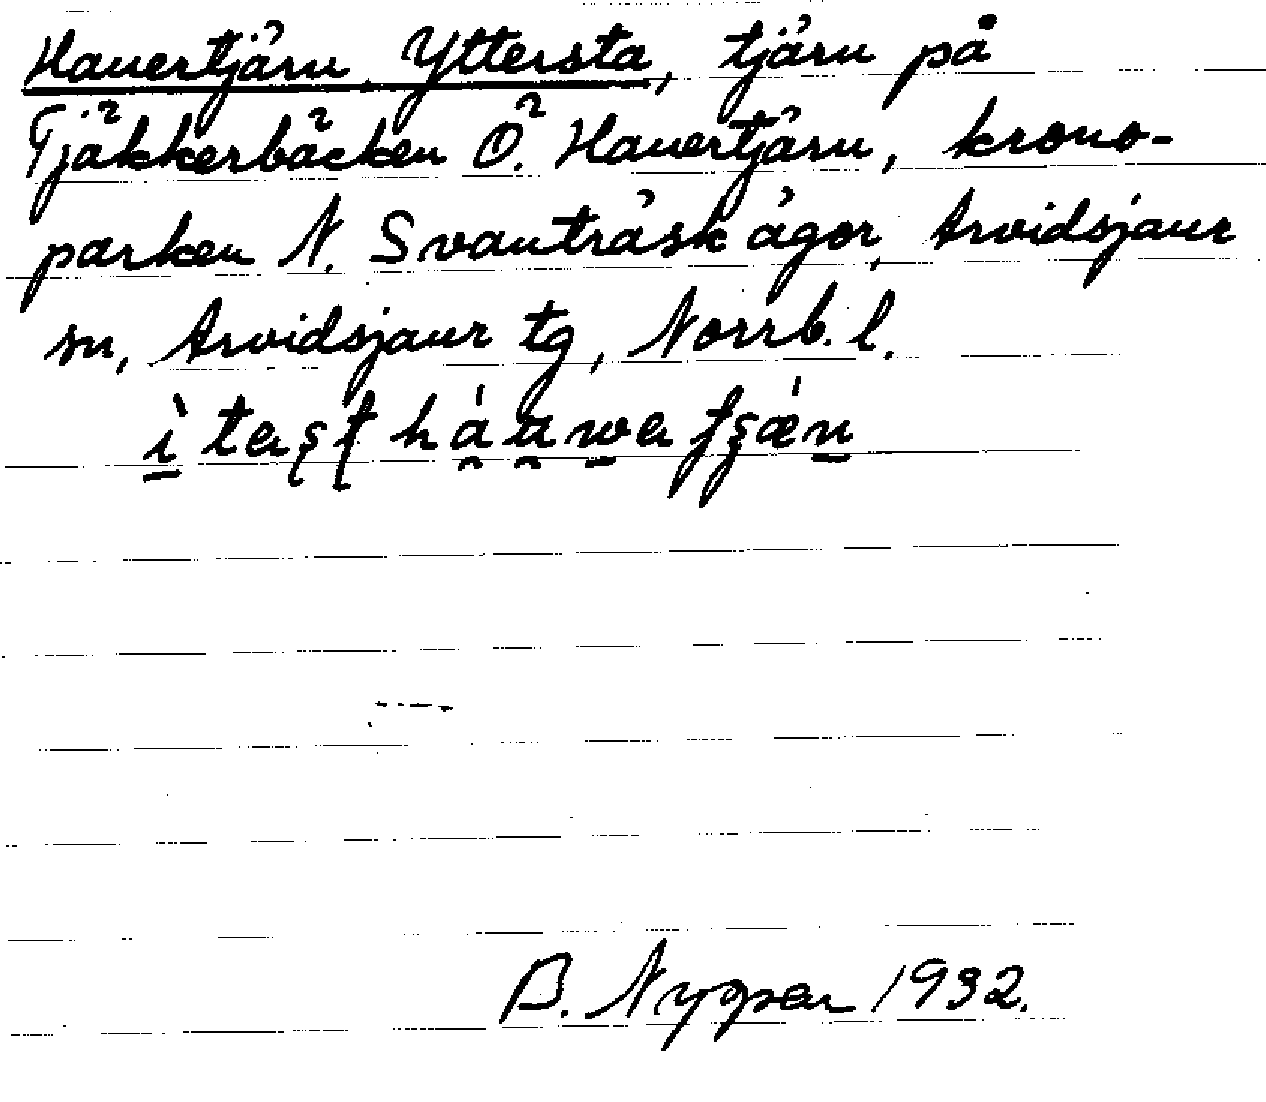 Havertjärn, Yttersta, tjärn på
Tjäkkerbäcken Ö. Havertjärn, krono-
parken N. Svanträsk ägor, Arvidsjaur
sn, Arvidsjaur tg, Norrb. l.
B. Nypen 1932.